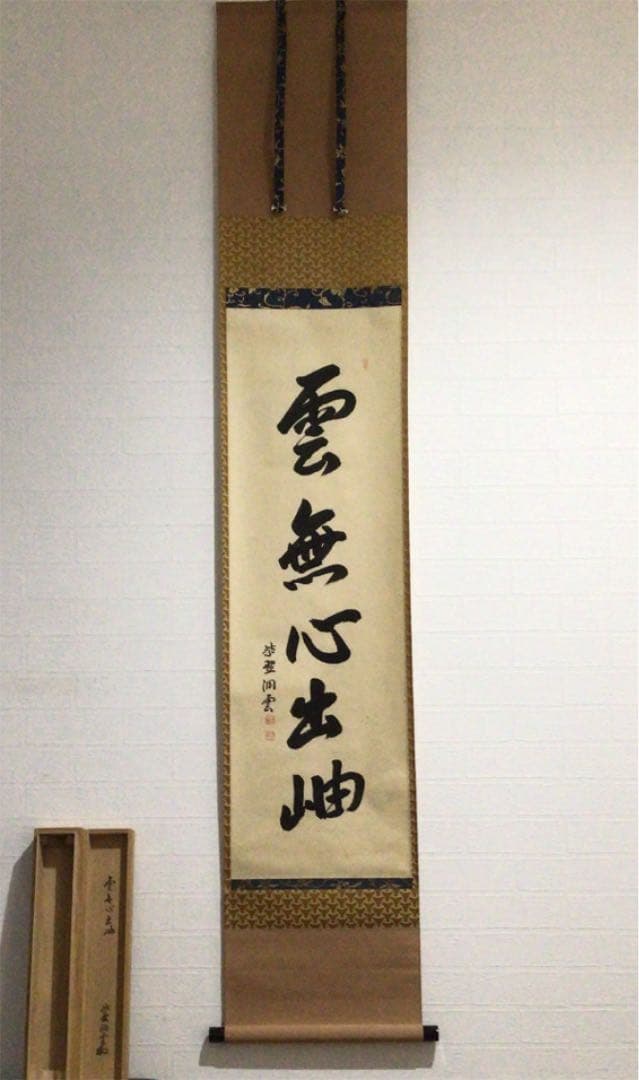 雲無心出岫
紫野洞雲
雲無心出岫